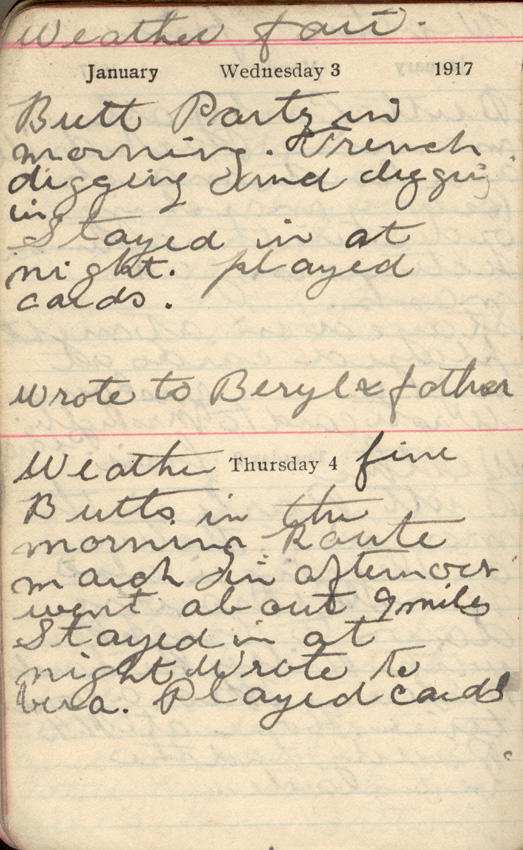 Weather fair.
January Wednesday 3 1917
Butt Party in
morning. Trench
digging and digging
in
Stayed in at
night. played
cards.
Wrote to Beryl & father
Weather Thursday 4 fine
Butts in the
morning Route
march in afternoon
went about 9 miles
Stayed in at
night Wrote to
Vera. Played cards